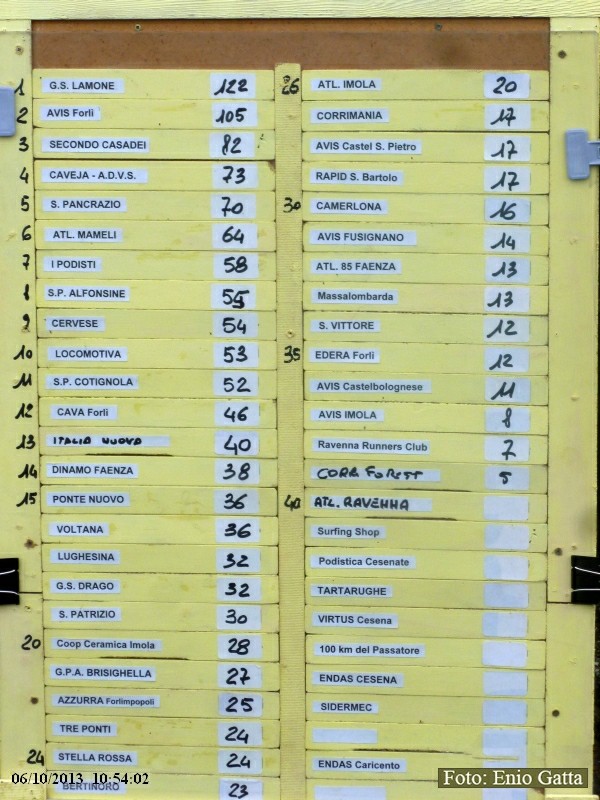 1 G.S. LAMONE 122
2 AVIS Forlì 105
3 SECONDO CASADEI 82
4 CAVEJA - A.D.V.S. 73
5 S. PANCRAZIO 70
6 ATL. MAMELI 64
7 I PODISTI 58
8 S.P. ALFONSINE 55
9 CERVESE 54
10 LOCOMOTIVA 53
11 S.P. COTIGNOLA 52
12 CAVA Forlì 46
13 ITALIA NUOVA 40
14 DINAMO FAENZA 38
15 PONTE NUOVO 36
VOLTANA 36
LUGHESINA 32
G.S. DRAGO 32
S. PATRIZIO 30
20 Coop Ceramica Imola 28
G.P.A. BRISIGHELLA 27
AZZURRA Forlimpopoli 25
TRE PONTI 24
24 STELLA ROSSA 24
BERTINORO 23
26 ATL. IMOLA 20
CORRIMANIA 17
AVIS Castel S. Pietro 17
RAPID S. Bartolo 17
30 CAMERLONA 16
AVIS FUSIGNANO 14
ATL. 85 FAENZA 13
Massalombarda 13
S. VITTORE 12
35 EDERA Forlì 12
AVIS Castelbolognese 11
AVIS IMOLA 8
Ravenna Runners Club 7
CORR FOREST 5
40 ATL. RAVENNA
Surfing Shop
Podistica Cesenate
TARTARUGHE
VIRTUS Cesena
100 km del Passatore
ENDAS CESENA
SIDERMEC
ENDAS Caricento
06/10/2013 10:54:02
Foto: Enio Gatta